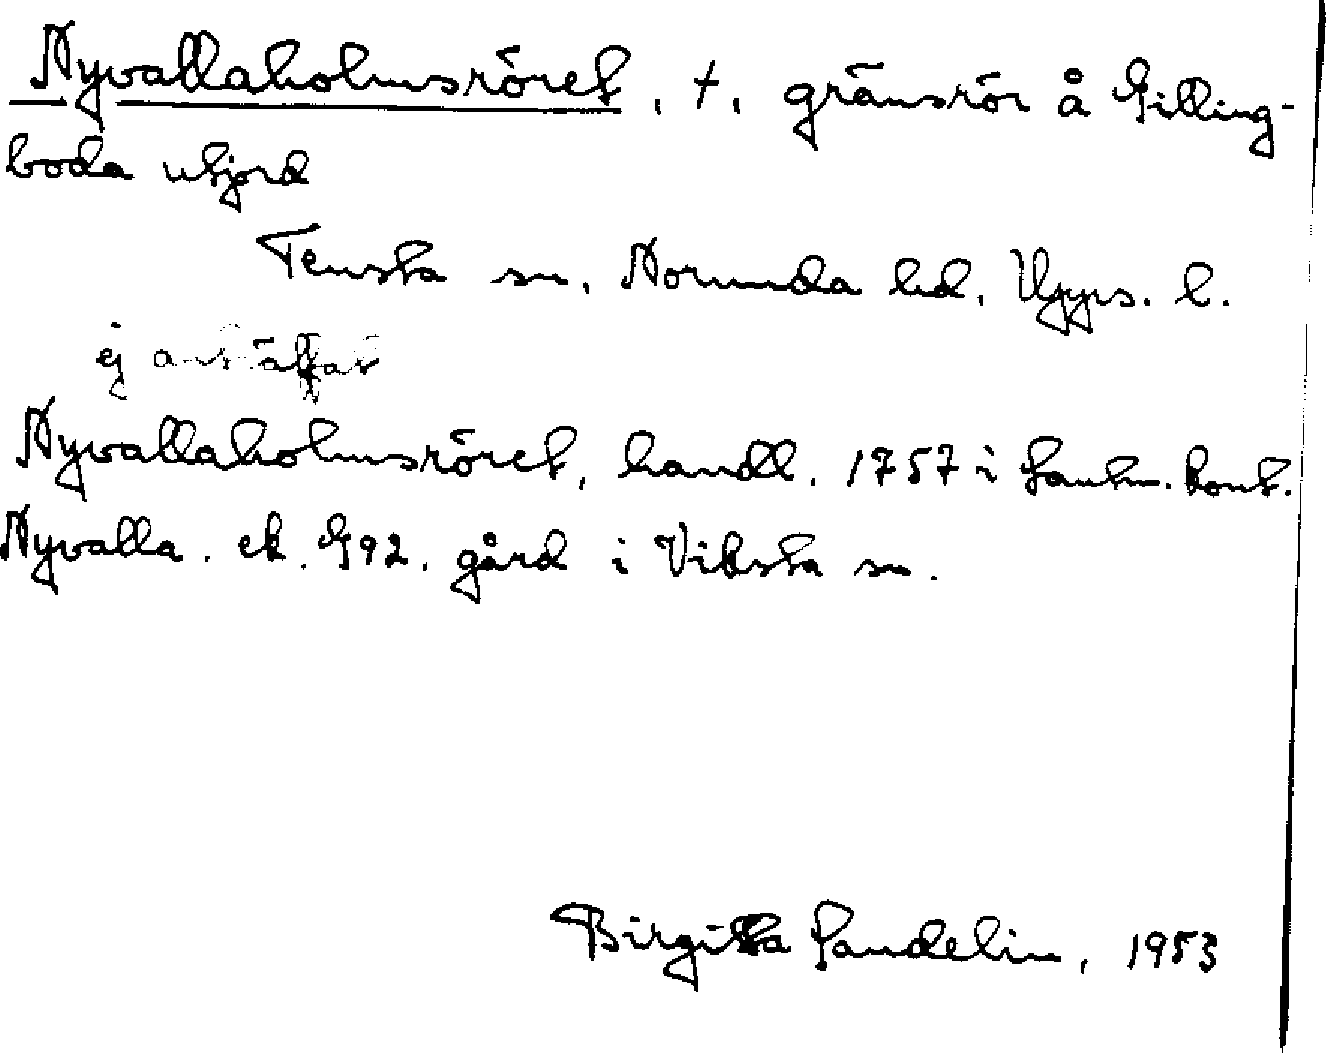 Nyvallaholmsröret, †, gränsrör å Gilling-
boda utjord
Tensta sn, Norunda hd, Upps. l.
ej anträffat
Nyvallaholmsröret, handl. 1757 i Lantm. kont.
Nyvalla. ek. G92. gård i Viksta sn.
Birgitta Sandelin, 1953